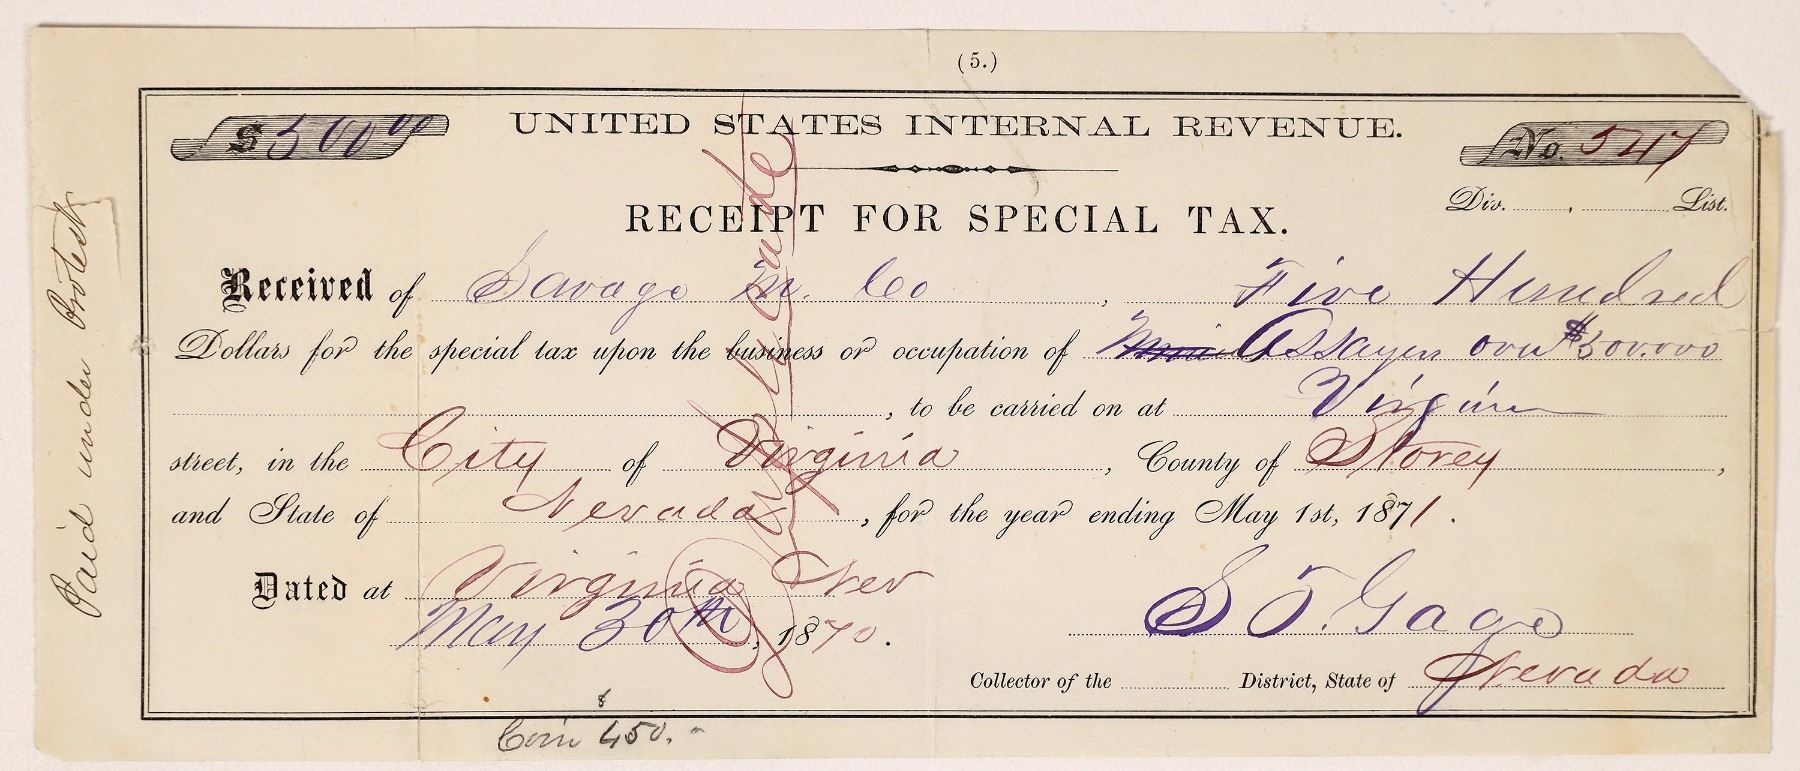 (5.)
$ 500 00
UNITED STATES INTERNAL REVENUE.
No. 547
RECEIPT FOR SPECIAL TAX.
Div. , List.
Received of Savage M. Co , Five Hundred
Dollars for the special tax upon the business or occupation of Assayer over $500.000
, to be carried on at Virginia
street, in the City of Virginia , County of Storey ,
and State of Nevada , for the year ending May 1st, 1871.
Dated at Virginia Nev
May 30th, 1870.
S T. Gage
Collector of the District, State of Nevada
Duplicate
Paid under Protest
Coin $ 450.-